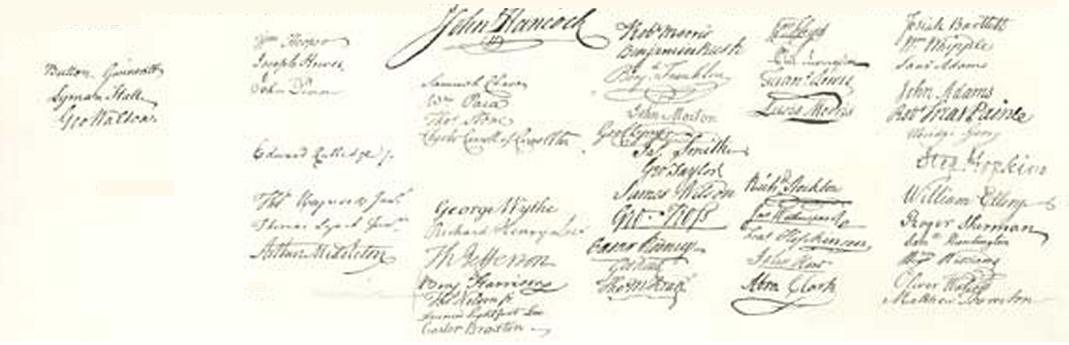 Button Gwinnett
Lyman Hall
Geo Walton
Wm Hooper
Joseph Hewes
John Penn
Edward Rutledge
Thos Heyward Junr
Thomas Lynch Junr
Arthur Middleton
John Hancock
Samuel Chase
Wm Paca
Thos Stone
Charles Carroll of Carrollton
George Wythe
Richard Henry Lee
Th Jefferson
Benj Harrison
Thos Nelson jr
Francis Lightfoot Lee
Carter Braxton
Robt Morris
Benjamin Rush
Benj Franklin
John Morton
Geo Clymer
Jas Smith
Geo Taylor
James Wilson
Geo Ross
Caesar Rodney
Geo Read
Tho M:Kean
Phil Livingston
Frans Lewis
Lewis Morris
Richd Stockton
Jno Witherspoon
Fras Hopkinson
John Hart
Abra Clark
Josiah Bartlett
Wm Whipple
Saml Adams
John Adams
Robt Treat Paine
Elbridge Gerry
Step Hopkins
William Ellery
Roger Sherman
Samel Huntington
Wm Williams
Oliver Wolcott
Matthew Thornton